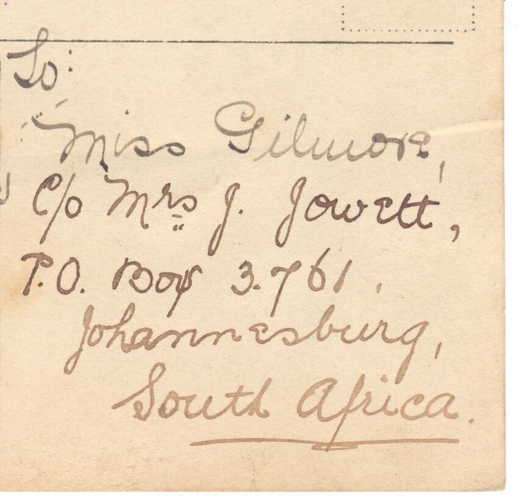 To:
Miss Gilmore,
C/o Mrs J. Jowett,
P.O. Box 3.761.
Johannesburg,
South Africa.